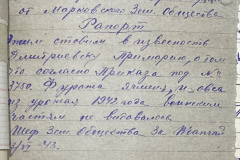 от Марковской Зем. Общества
Рапорт
Этим ставим в известность
Дмитриевску Примарию, о том
что согласно Приказа под №
3750. Фуража ячменя, и овса
из урожая 1942 года воинским
частям не выдавалось.
Шеф Зем. Общества За
VI 43.